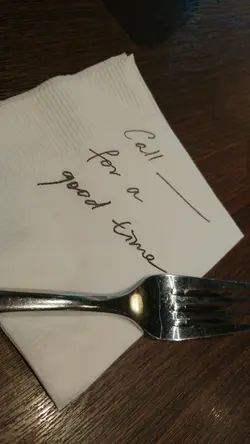 Call ___
for a
good time